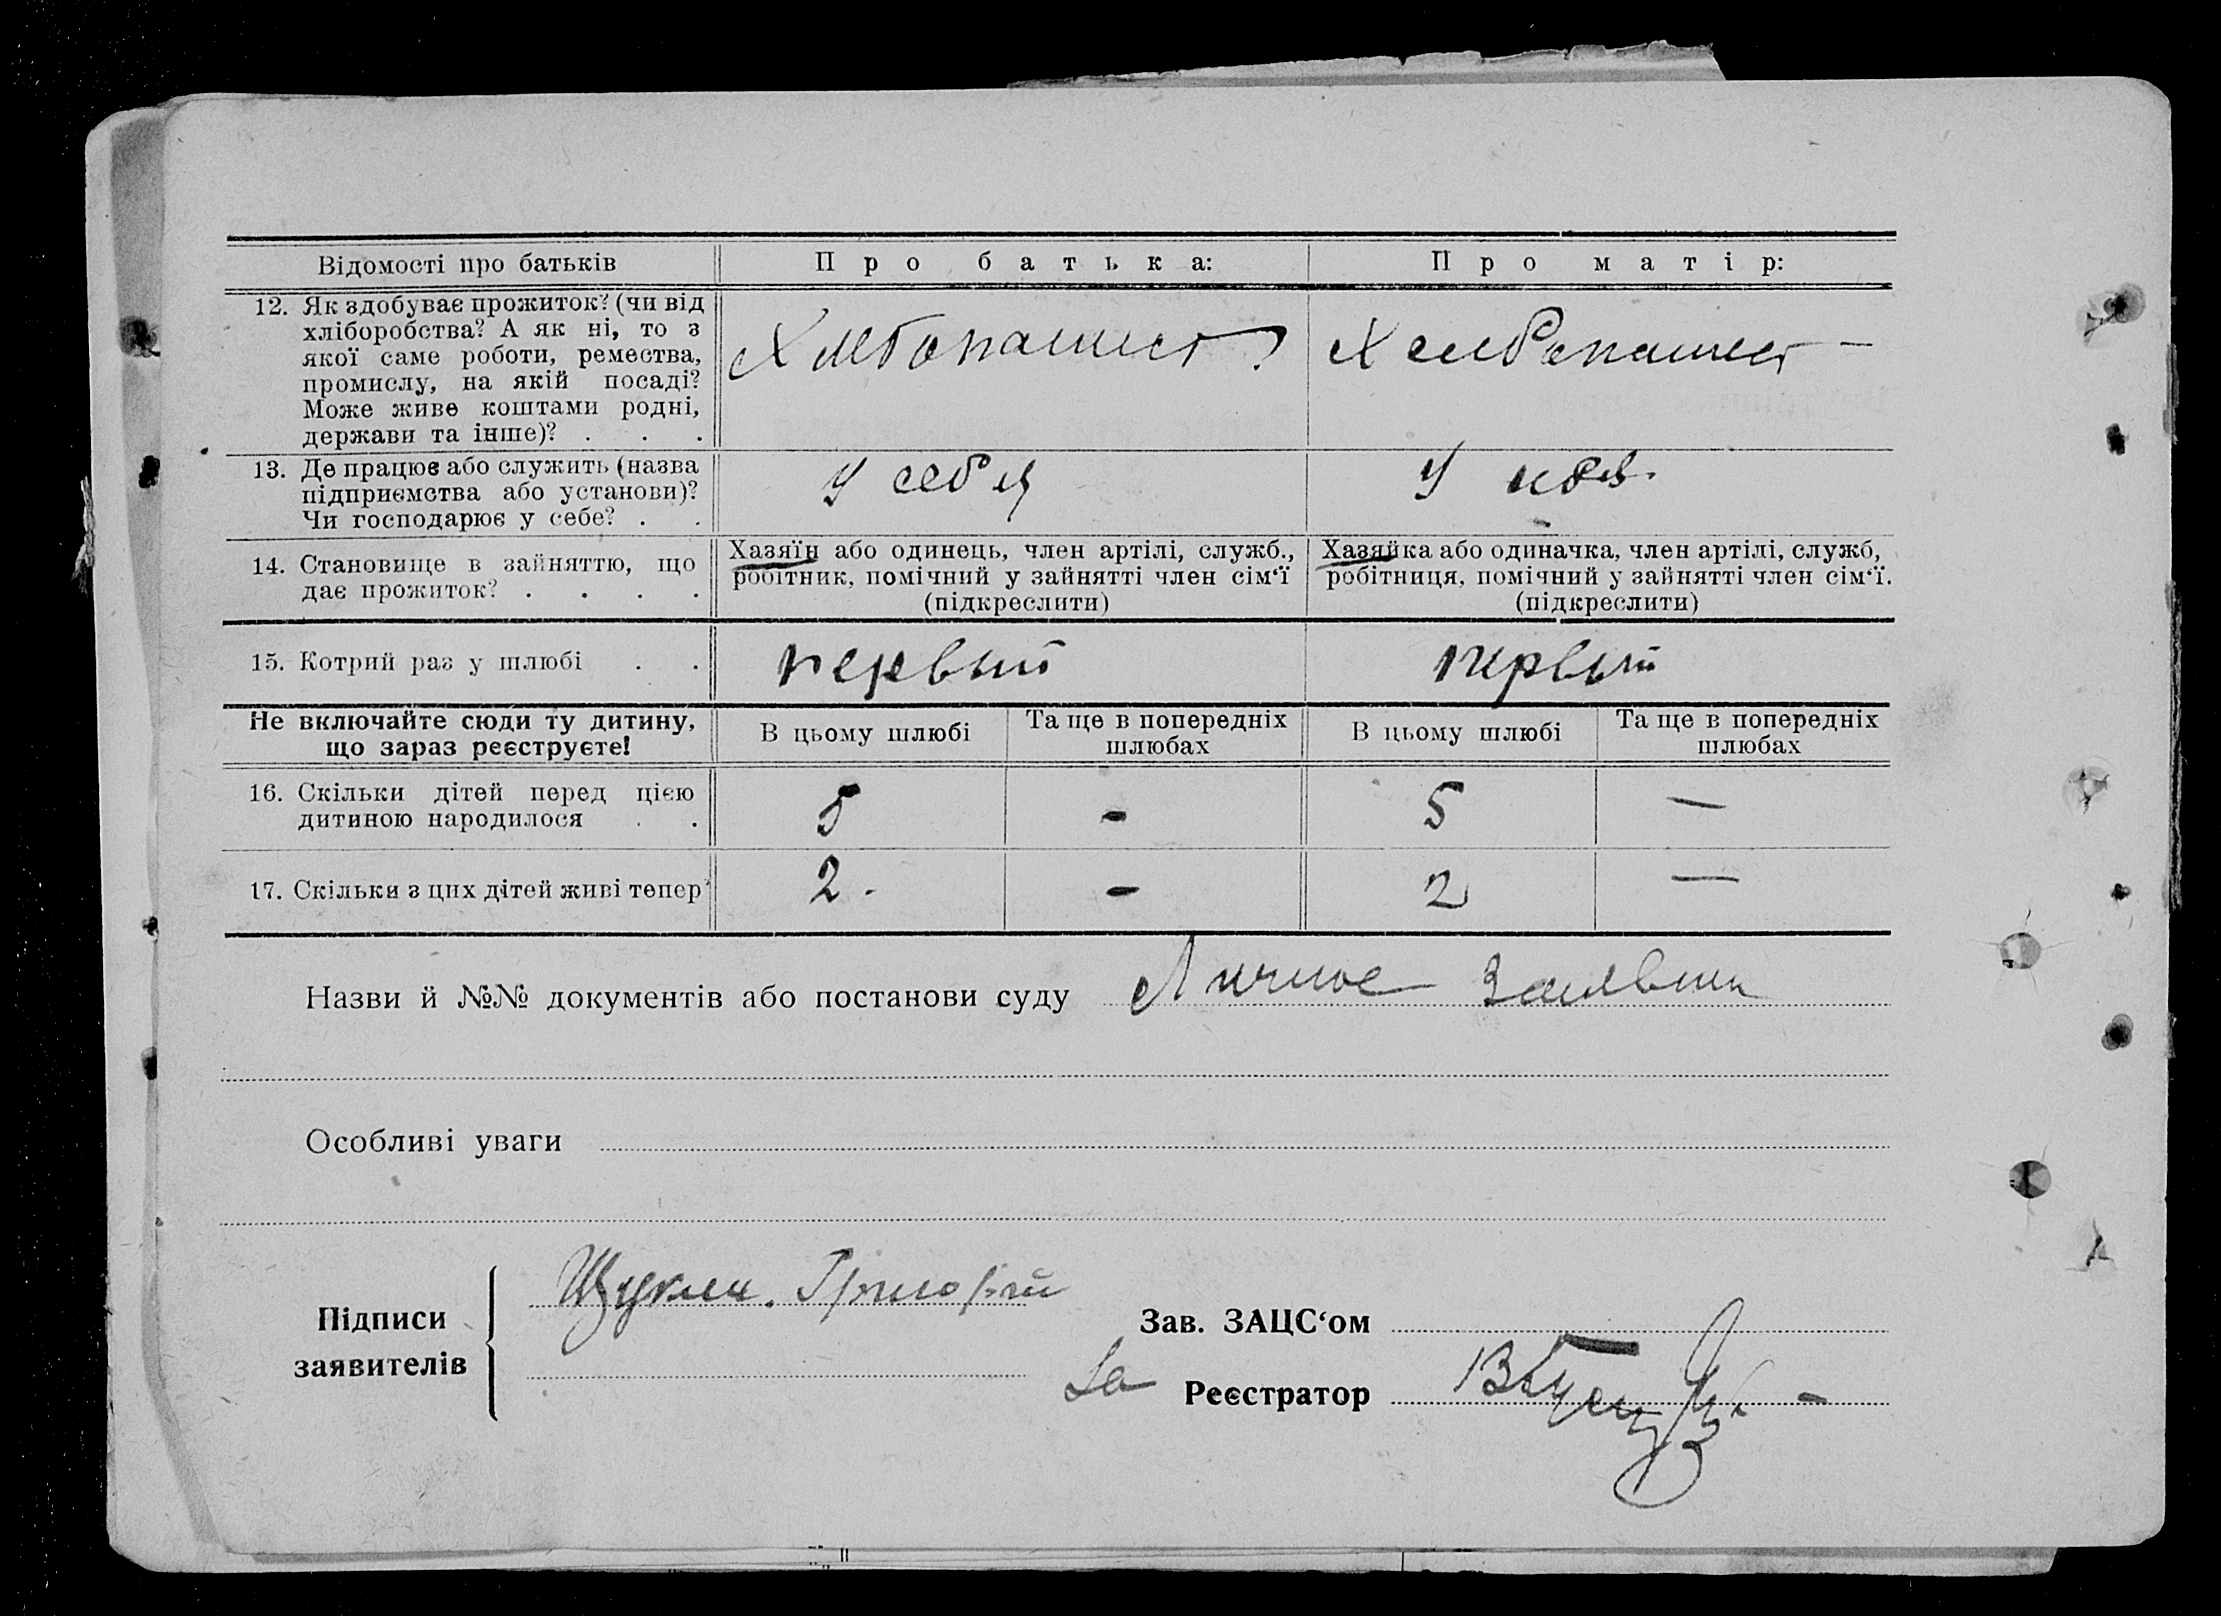 Відомості про батьків
Про батька:
Про матір:
12. Як здобуває прожиток? (чи від
хліборобства? А як ні, то з
якої саме роботи, ремества,
промислу, на якій посаді?
Може живе коштами родні,
держави та інше)? . . .
13. Де працює або служить (назва
підприємства або установи)?
Чи господарює у себе? . .
У себя
У
14. Становище в зайняттю, що
дає прожиток? . . . .
Хазяїн або одинець, член артілі, служб.,
робітник, помічний у зайнятті член сім‘ї
(підкреслити)
Хазяйка або одиначка, член артілі, служб,
робітниця, помічний у зайнятті член сім‘ї.
(підкреслити)
15. Котрий раз у шлюбі . .
первый
первый
Не включайте сюди ту дитину,
що зараз реєструєте!
В цьому шлюбі
Та ще в попередніх
шлюбах
В цьому шлюбі
Та ще в попередніх
шлюбах
16. Скільки дітей перед цією
дитиною народилося . .
5
-
5
—
17. Скільки з цих дітей живі тепер?
2.
-
2
—
Назви й №№ документів або постанови суду Личное
Особливі уваги
Підписи
заявителів
Григорий
Зав. ЗАЦС‘ом
За Реєстратор